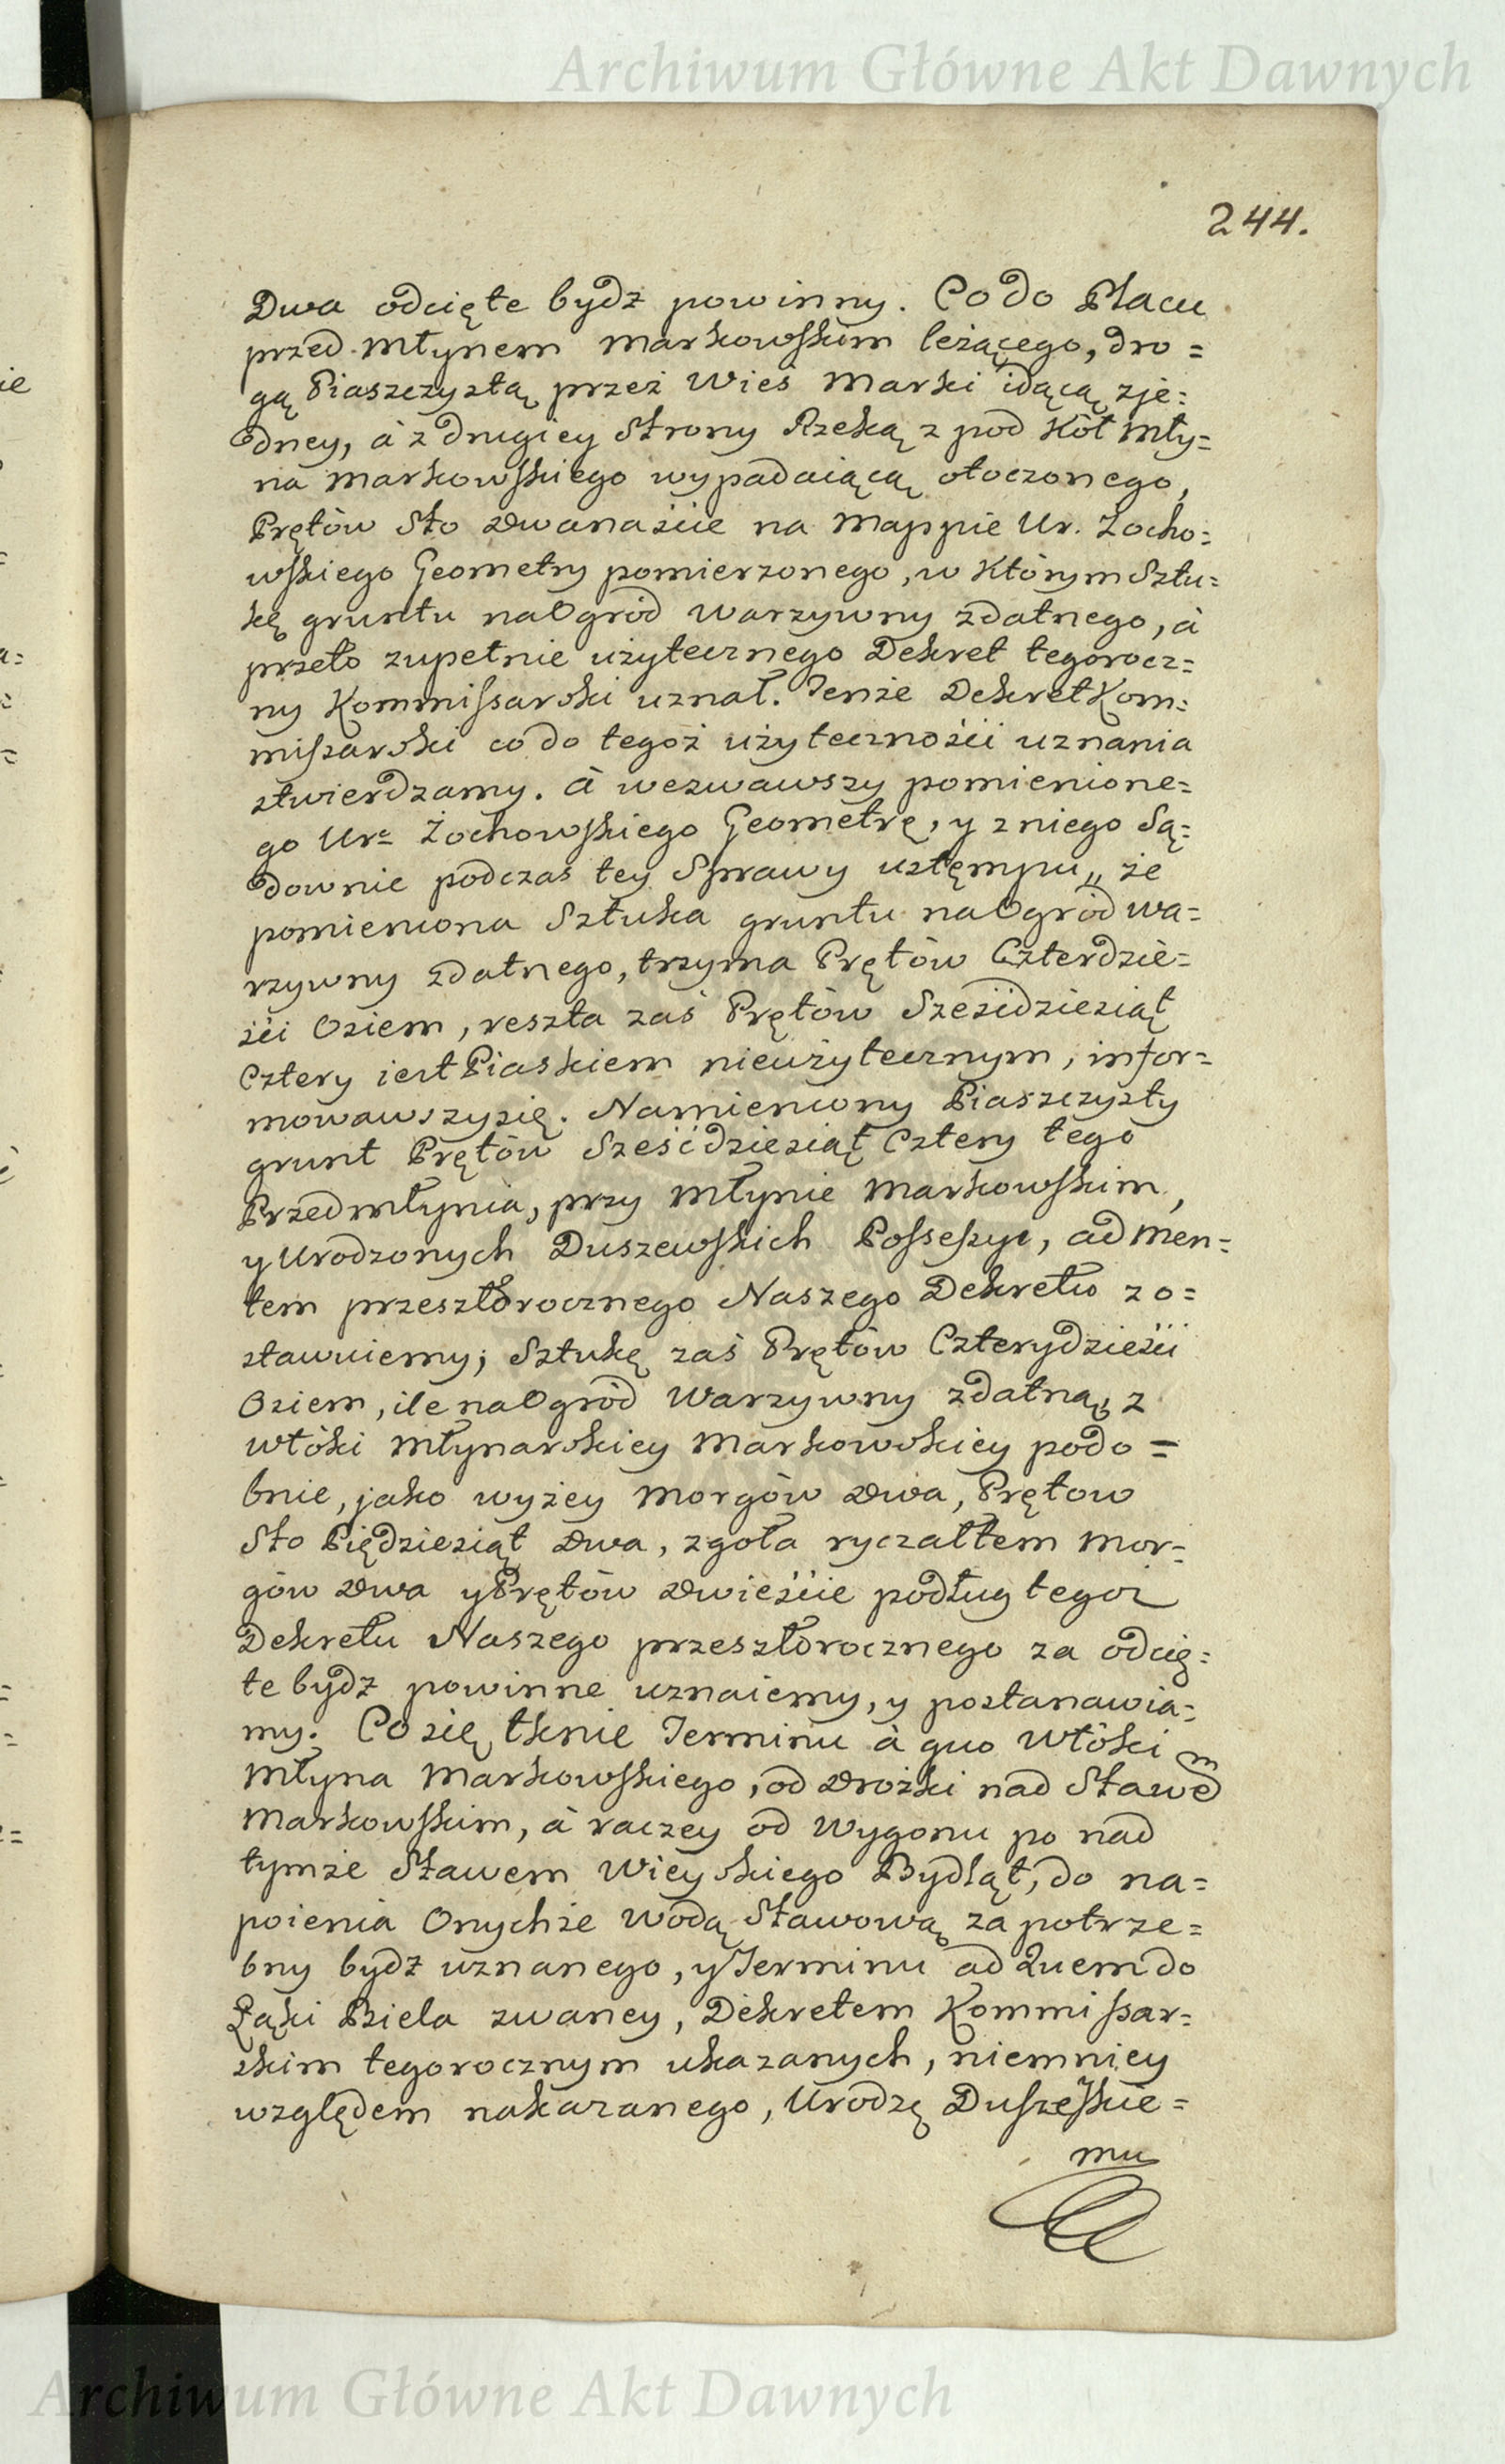 Archiwum Główne Akt Dawnych
244.
Dwa odcięte bydź powinny. Co do Placu
przed Młynem Markowskim leżącego, dro=
gą Piaszczystą przez Wieś Marki idącą zje=
dney, à z drugiey Strony Rzeką z pod Kół Mły=
na Markowskiego wypadaiącą otoczonego,
Prętów Sto Dwanaście na Mappie Ur. Żocho=
wskiego Geometry pomierzonego, w Którym Sztu=
kę gruntu na Ogród Warzywny zdatnego, à
przeto zupełnie użytecznego Dekret tegorocz=
ny Kommissarski uznał. Tenże Dekret Kom=
missarski co do tegoż użyteczności uznania
stwierdzamy. à wezwawszy pomienione=
go Urº Żochowskiego Geometrę, y z niego Są=
downie podczas tey Sprawy ustęmpu„ że
pomieniona Sztuka gruntu na Ogród wa=
rzywny zdatnego, trzyma Prętów Czterdzie=
ści Osiem, reszta zaś Prętów Sześćdziesiąt
Cztery iest Piaskiem nieużytecznym, infor=
mowawszysię. Namieniony Piaszczysty
grunt Prętów Sześćdziesiąt Cztery tego
Przedmłynia, przy Młynie Markowskim,
y Urodzonych Duszewskich Possessyi, ad men=
tem przeszłorocznego Naszego Dekretu zo=
stawuiemy; Sztukę zaś Prętów Czterydzieści
Osiem, ile na Ogród Warzywny zdatną, z
włóki Młynarskiey Markowskiey podo=
bnie, jako wyżey Morgów Dwa, Prętow
Sto Piędziesiąt Dwa, zgoła ryczałtem Mor=
gów Dwa y Prętów Dwieście podług tegoż
Dekretu Naszego przeszłorocznego za odcię=
te bydź powinne uznaiemy, y postanawia=
my. Co się tknie Terminu à quo Włóki
Młyna Markowskiego, od Drożki nad Stawem
Markowskim, à raczey od Wygonu po nad
tymże Stawem Wieyskiego Bydląt, do na=
poienia Onychże Wodą Stawową za potrze=
bny bydź uznanego, y Terminu ad Quem do
Łąki Biela zwaney, Dekretem Kommissar=
skim tegorocznym ukazanych, niemniey
względem nakazanego, Urodzę Duszeskie=
mu
Archiwum Główne Akt Dawnych